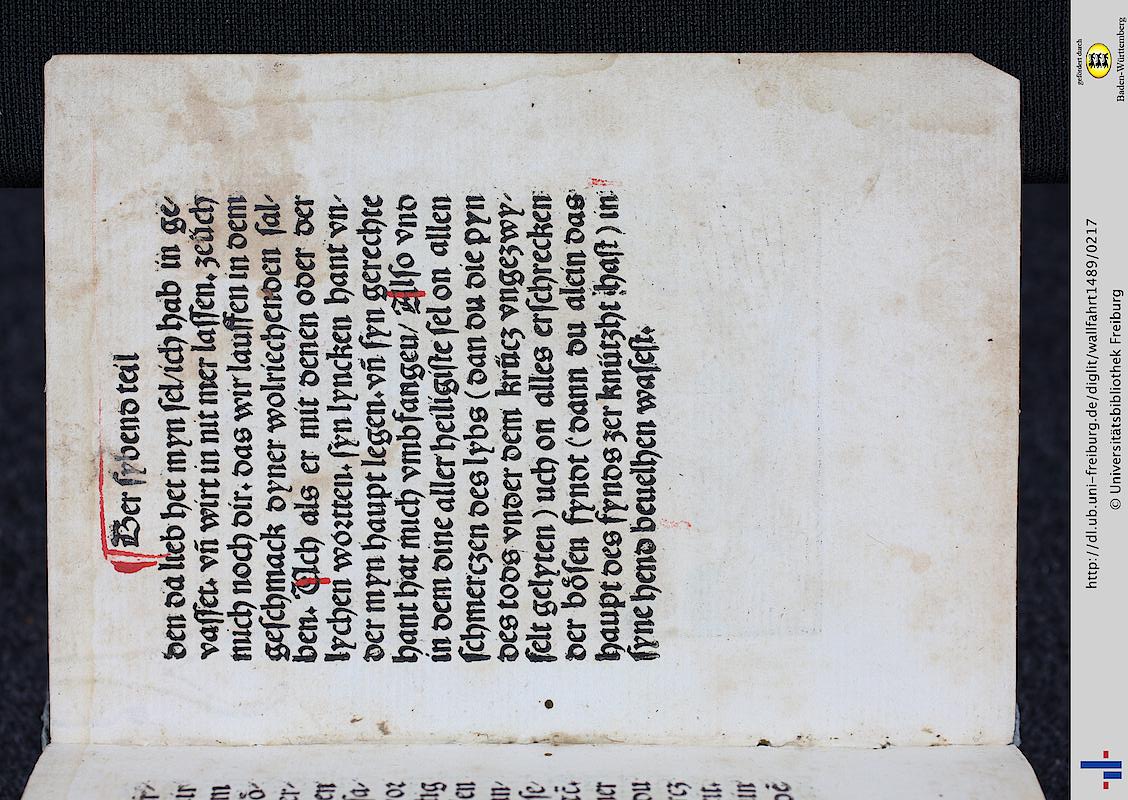 Der sybend teil
den da lieb het myn sel/ich hab in ge-
vasset. vn̄ wirt in nit mer lassen. zeüch
mich noch dir. das wir lauffen in dem
geschmack dyner wolriechenden sal-
ben. Uch als er mit denen oder der
lychen worten. syn lyncken hant vn-
der myn haupt legen. vn̄ syn gerechte
hant hat mich vmbfangen/ Also vnd
in dem dine aller heiligiste sel on allen
schmerczen des lybs (dan du die pyn
des tods vnder dem krücz vngezwy-
felt gelyten) uch on alles erschrecken
der bösen fyndt (dann du alein das
haupt des fynds zer knützht hast) in
syne hend beuelhen wasest.
gefördert durch
Baden-Württemberg
http://dl.ub.uni-freiburg.de/diglit/wallfahrt1489/0217
© Universitätsbibliothek Freiburg